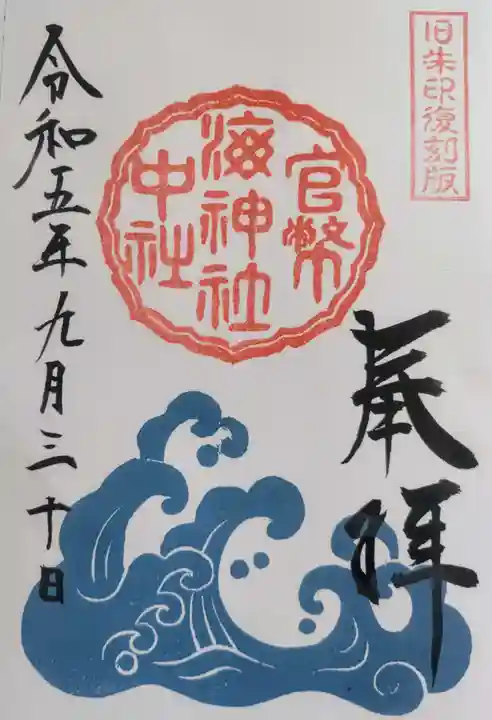 旧朱印復刻版
奉拝
官幣
海神社
中社
令和五年九月三十日